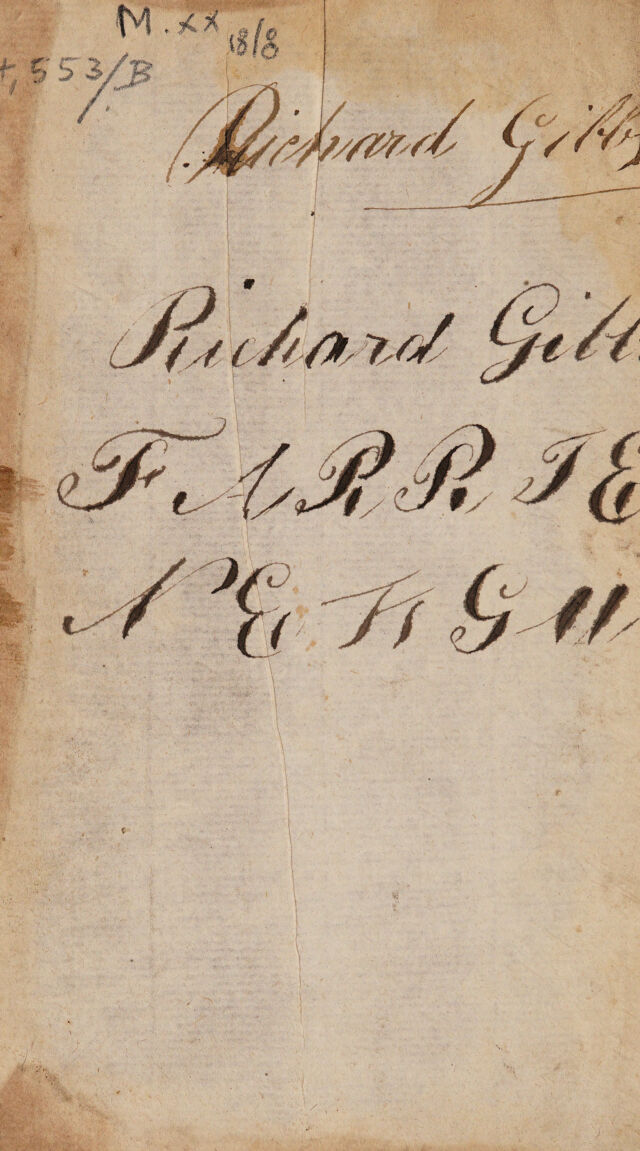 M. xx 18/8
4, 553/B
Richard Gibb
Richard Gibb
FARRIE
NEKGU